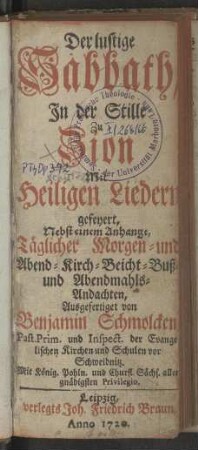 Der lustige
Sabbath,
In der Stille
Zu
Zion
Mit
Heiligen Liedern
gefeyert,
Nebst einem Anhange,
Täglicher Morgen- und
Abend- Kirch- Beicht- Buß-
und Abendmahls-
Andachten,
Ausgefertiget von
Benjamin Schmolcken
Past. Prim. und Inspect. der Evange
lischen Kirchen und Schulen vor
Schweidnitz.
Mit König. Pohln. und Churfl. Sächs. aller
gnädigsten Privilegio.
Leipzig,
verlegts Joh. Friedrich Braun,
Anno 1720.